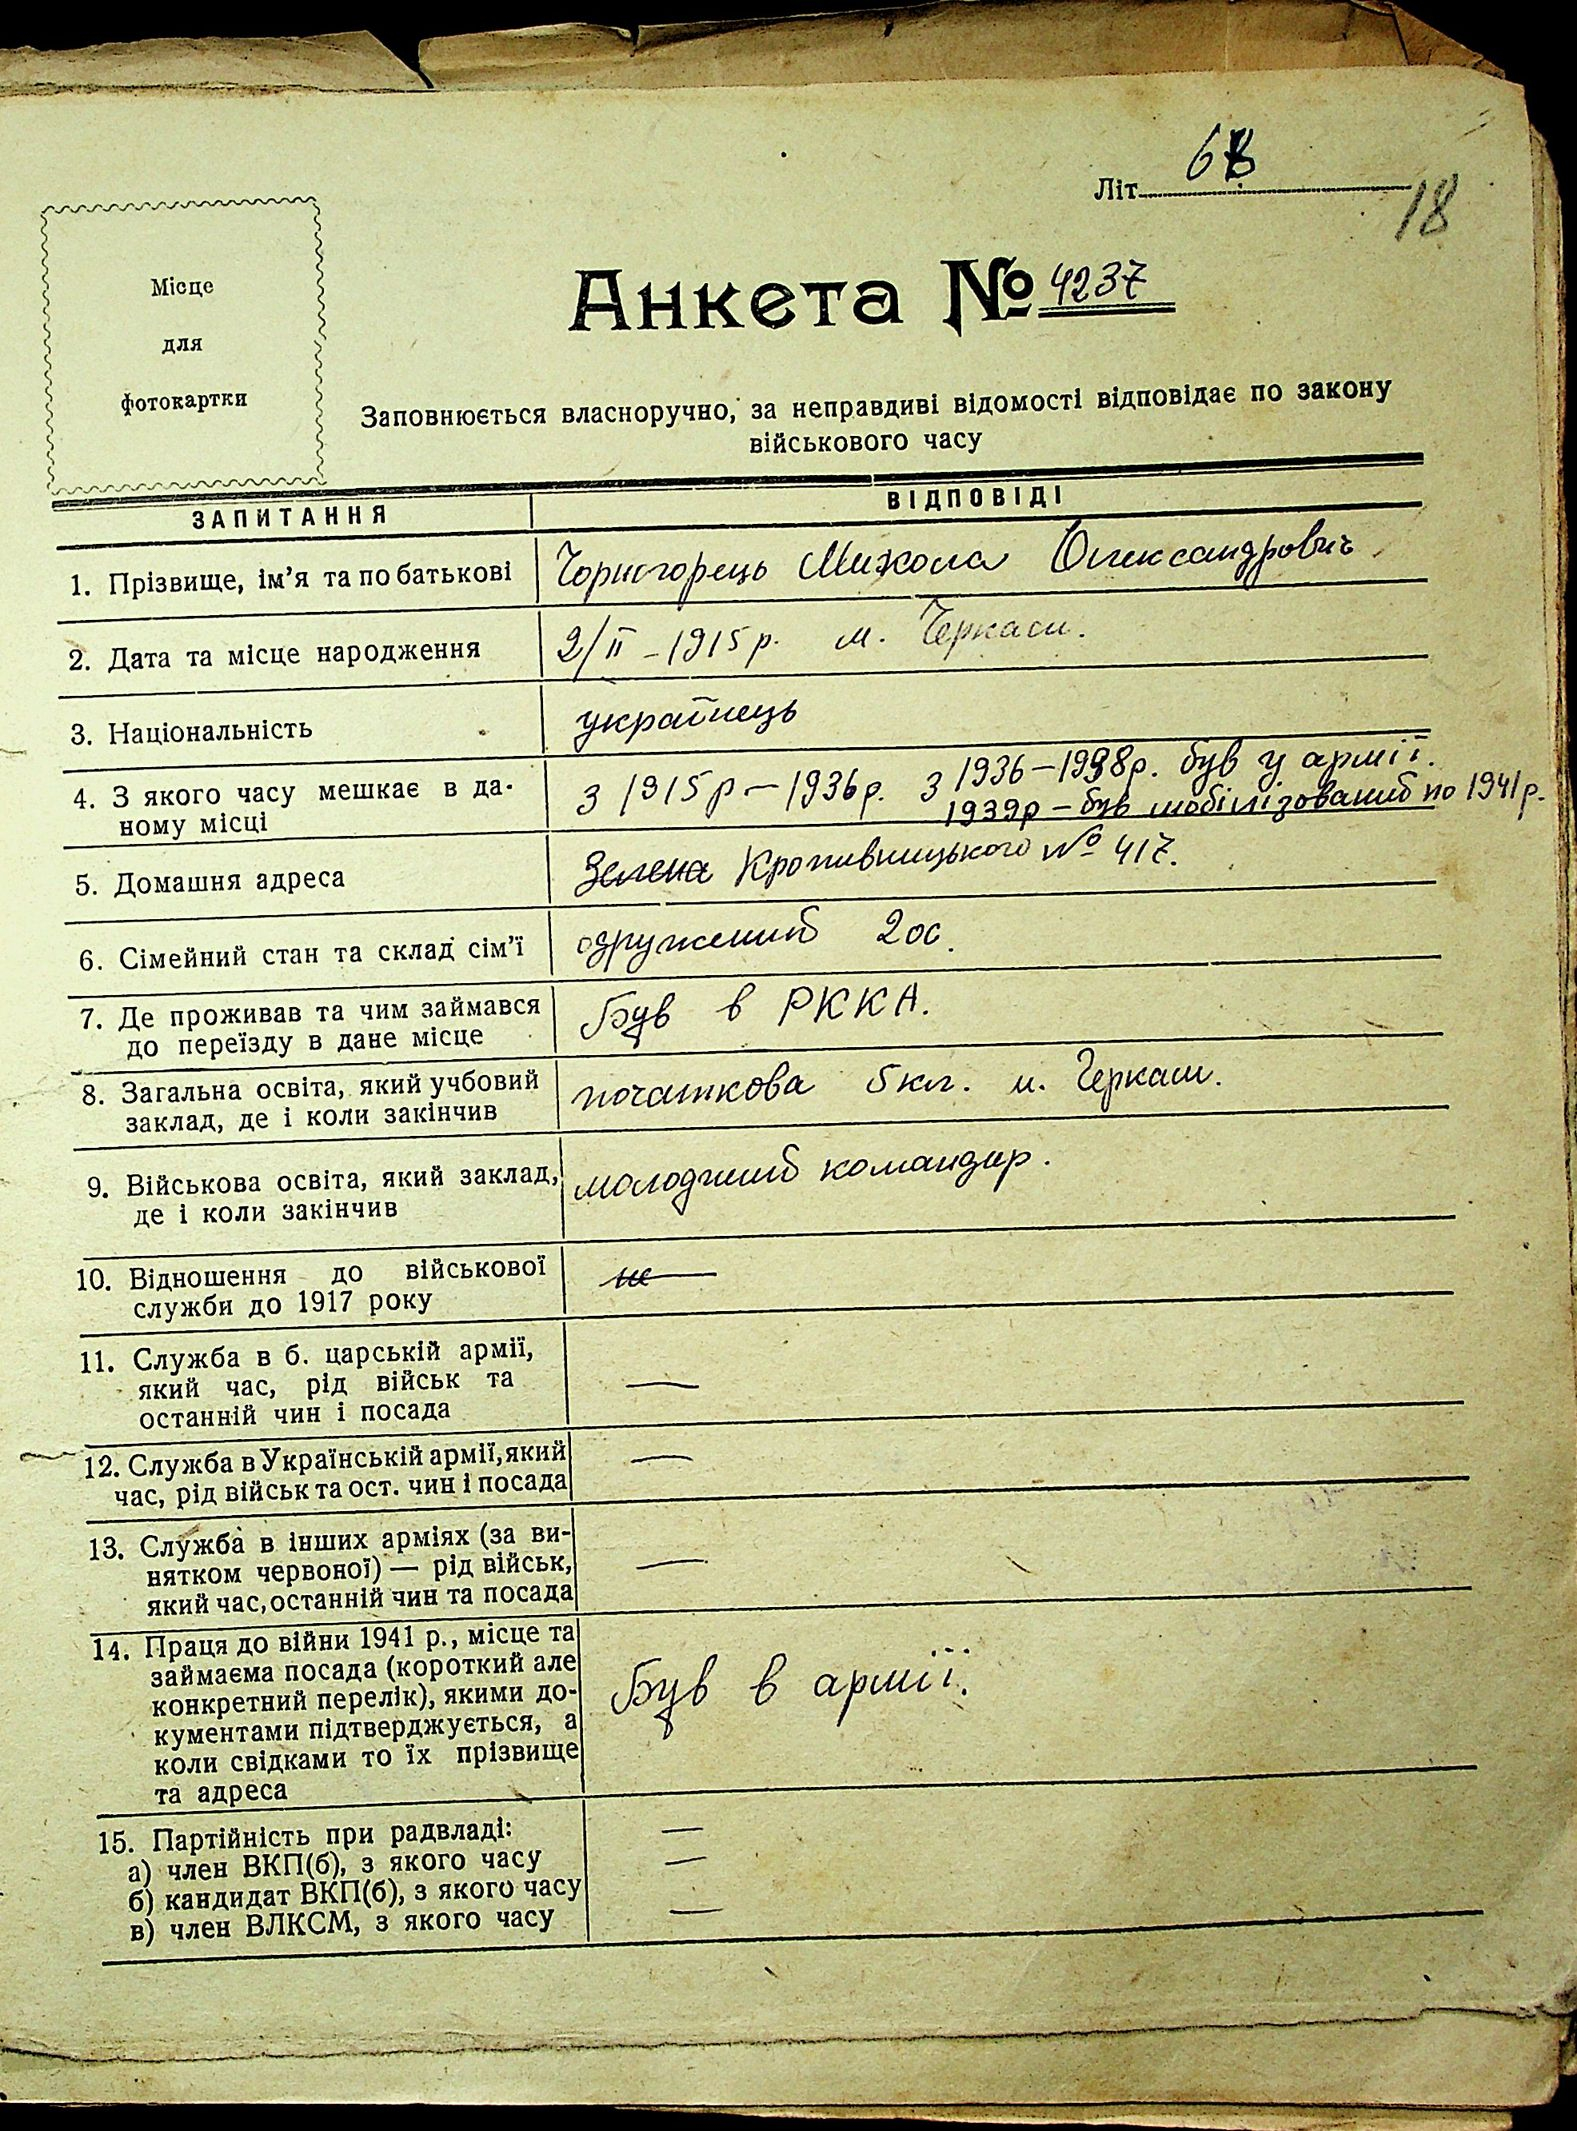 Літ
18
Місце
для
фотокартки
Анкета № 4237
Заповнюється власноручно, за неправдиві відомості відповідає по закону
військового часу
ЗАПИТАННЯ
ВІДПОВІДІ
1. Прізвище, ім'я та по батькові
Чорногорець Микола Олександрович
2. Дата та місце народження
2/II – 1915 р. м. Черкаси.
3. Національність
українець
4. З якого часу мешкає в да-
ному місці
з 1915 р – 1936 р. з 1936 – 1938 р. був у армії.
1939 р – був мобілізований по 1941 р.
5. Домашня адреса
Зелена Кропивницького № 417.
6. Сімейний стан та склад сім'ї
одружений 2 ос.
7. Де проживав та чим займався
до переїзду в дане місце
Був в РККА.
8. Загальна освіта, який учбовий
заклад, де і коли закінчив
початкова 5 кл. м. Черкаси.
9. Військова освіта, який заклад,
де і коли закінчив
молодший командир.
10. Відношення до військової
служби до 1917 року
не —
11. Служба в б. царській армії,
який час, рід військ та
останній чин і посада
—
12. Служба в Українській армії, який
час, рід військ та ост. чин і посада
—
13. Служба в інших арміях (за ви-
нятком червоної) — рід військ,
який час, останній чин та посада
—
14. Праця до війни 1941 р., місце та
займаєма посада (короткий але
конкретний перелік), якими до-
кументами підтверджується, а
коли свідками то їх прізвище
та адреса
Був в армії.
15. Партійність при радвладі:
—
а) член ВКП(б), з якого часу
—
б) кандидат ВКП(б), з якого часу
в) член ВЛКСМ, з якого часу
—